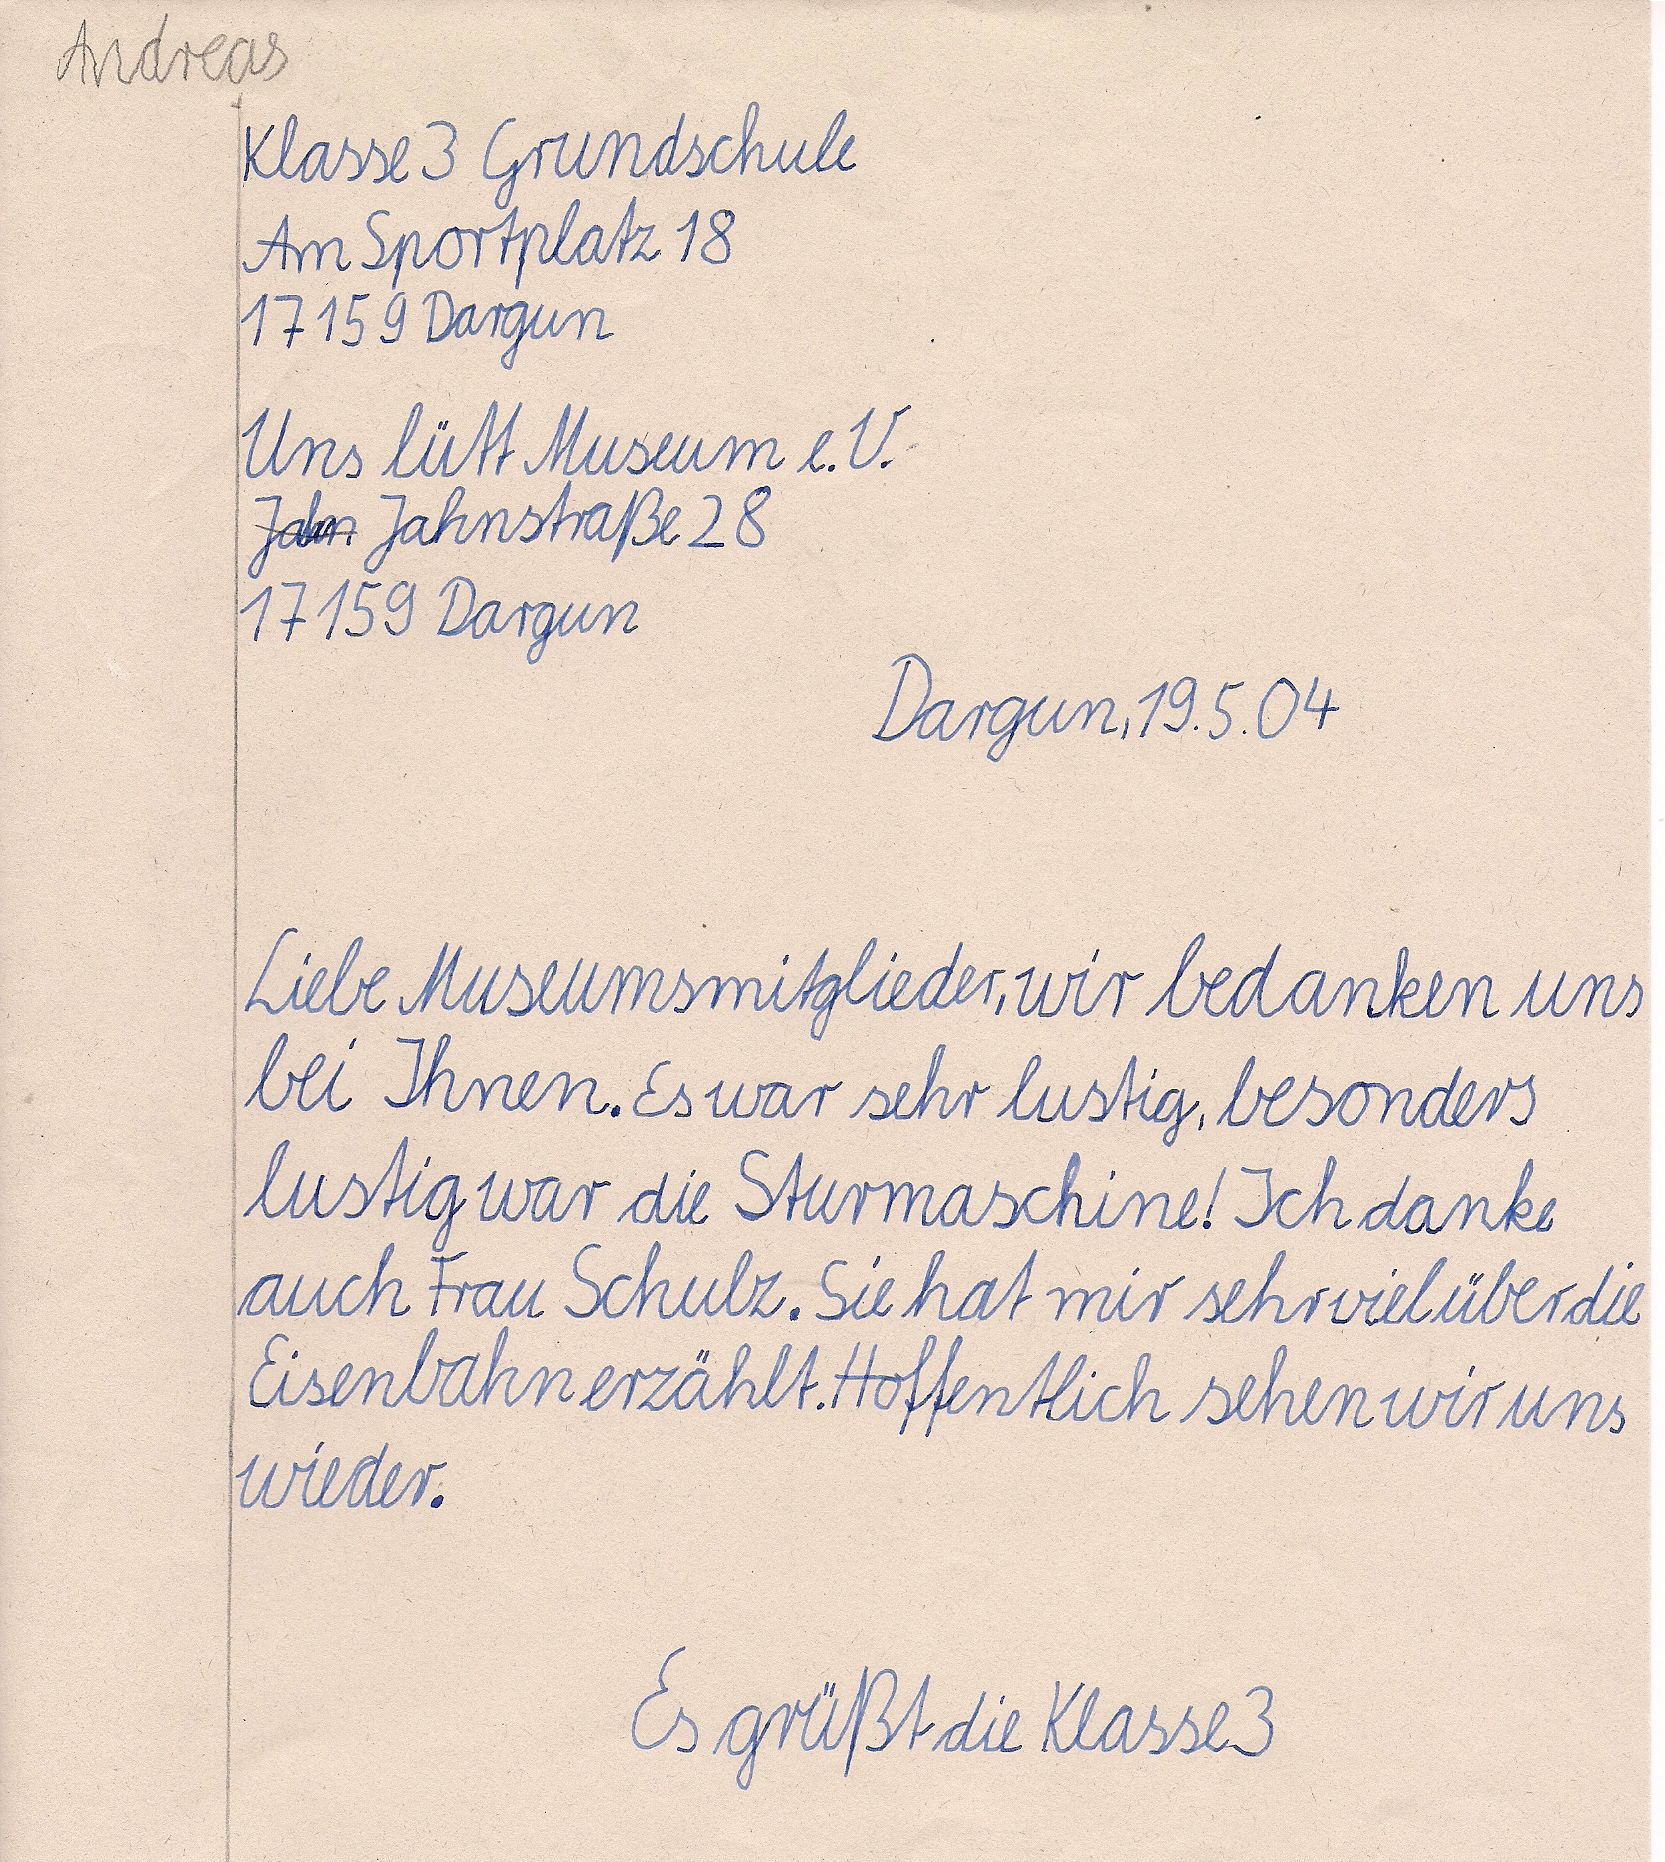 Andreas
Klasse 3 Grundschule
Am Sportplatz 18
17159 Dargun
Uns lütt Museum e.V.
Jahnstraße 28
17159 Dargun
Dargun, 19.5.04
Liebe Museumsmitglieder, wir bedanken uns
bei Ihnen. Es war sehr lustig, besonders
lustig war die Sturmaschine! Ich danke
auch Frau Schulz. Sie hat mir sehr viel über die
Eisenbahn erzählt. Hoffentlich sehen wir uns
wieder.
Es grüßt die Klasse 3